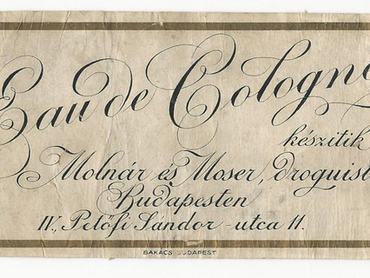 Eau de Cologn
készitik
Molnár és Moser, droguist
Budapesten
IV., Petőfi Sándor-utca 11.
BAKÁCS BUDAPEST